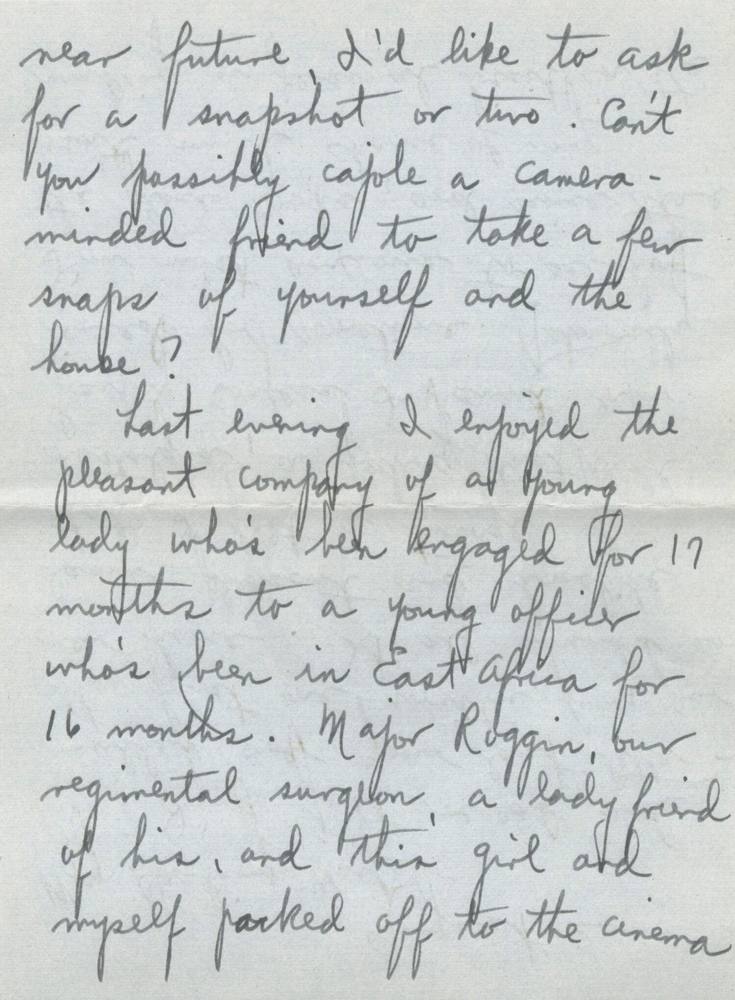 near future, I'd like to ask
for a snapshot or two. Can't
you possibly cajole a camera-
minded friend to take a few
snaps of yourself and the
house?
Last evening I enjoyed the
pleasant company of a young
lady who's been engaged for 17
months to a young officer
who's been in East Africa for
16 months. Major Roggin, our
regimental surgeon, a lady friend
of his, and this girl and
myself packed off to the cinema